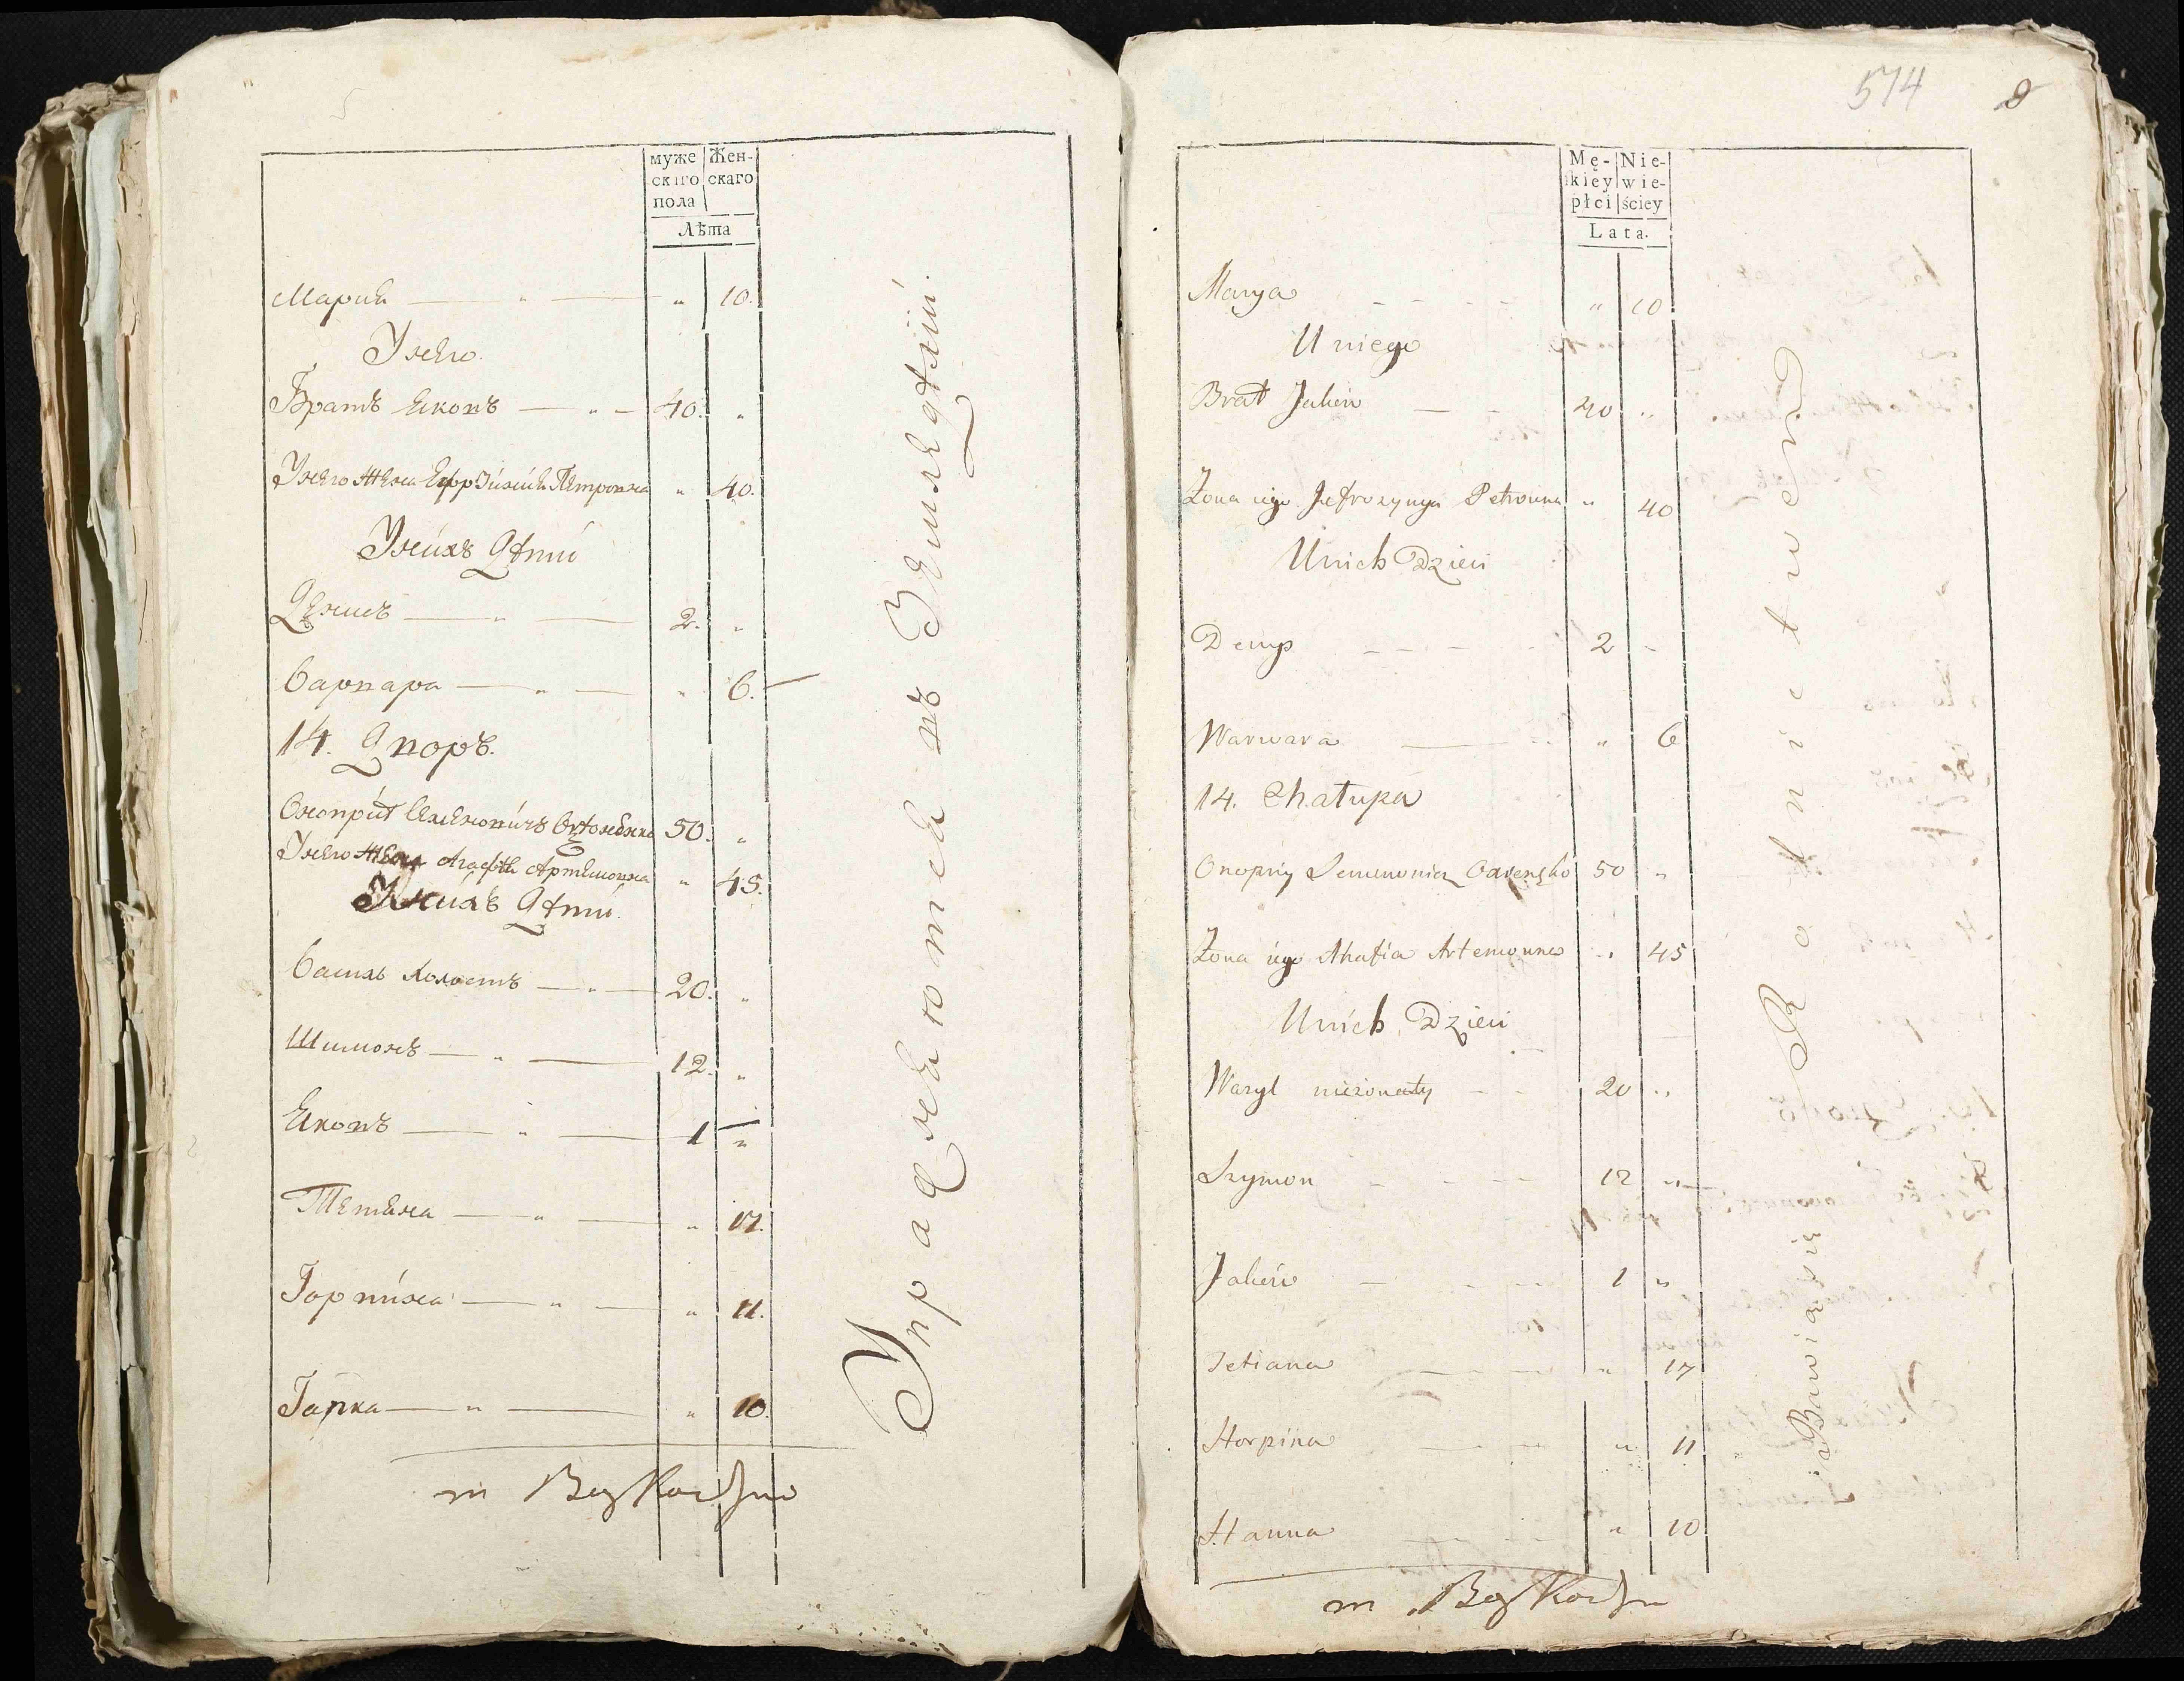 муже
скаго
пола
Жен-
скаго
Лѣта
Мария — „ — „ 10.
Унего.
Братъ Яковъ — „ — 40. „
Унего жена Ефрозиния Петровна „ 40.
Унихъ дѣти
Денисъ — „ — 2. „
Варвара — „ — „ 6. —
14. Дворъ.
Оноприй Семеновичъ 50. „
Унего жена Агафія Артемовна „ 45.
Унихъ дѣти.
Василь холостъ — „ — 20. „
Шимонъ — „ — 12. „
Яковъ — „ — 1 „
Тетяна — „ — „ 17.
Горпина — „ — „ 11.
Гапка — „ — „ 10.
Упражняются въ Земледѣлии.
574
8
Mę-
skiey
płci
Nie-
wie-
ściey
Lata.
Marya „ 10
U niego
Brat Jakow 40 „
Żona iego Jefrozynya Petrowna „ 40
U nich Dzieci
Denys 2 „
Warwara „ 6
14. Chałupa
Onopriy Semenowicz 50 „
Żona iego Ahafia Artemowna „ 45
U nich Dzieci
Wasyl nieżonaty 20 „
Szymon 12 „
Jakow 1 „
Tetiana „ 17
Horpina „ 11
Hanna „ 10
Bawią się Rolnictwem